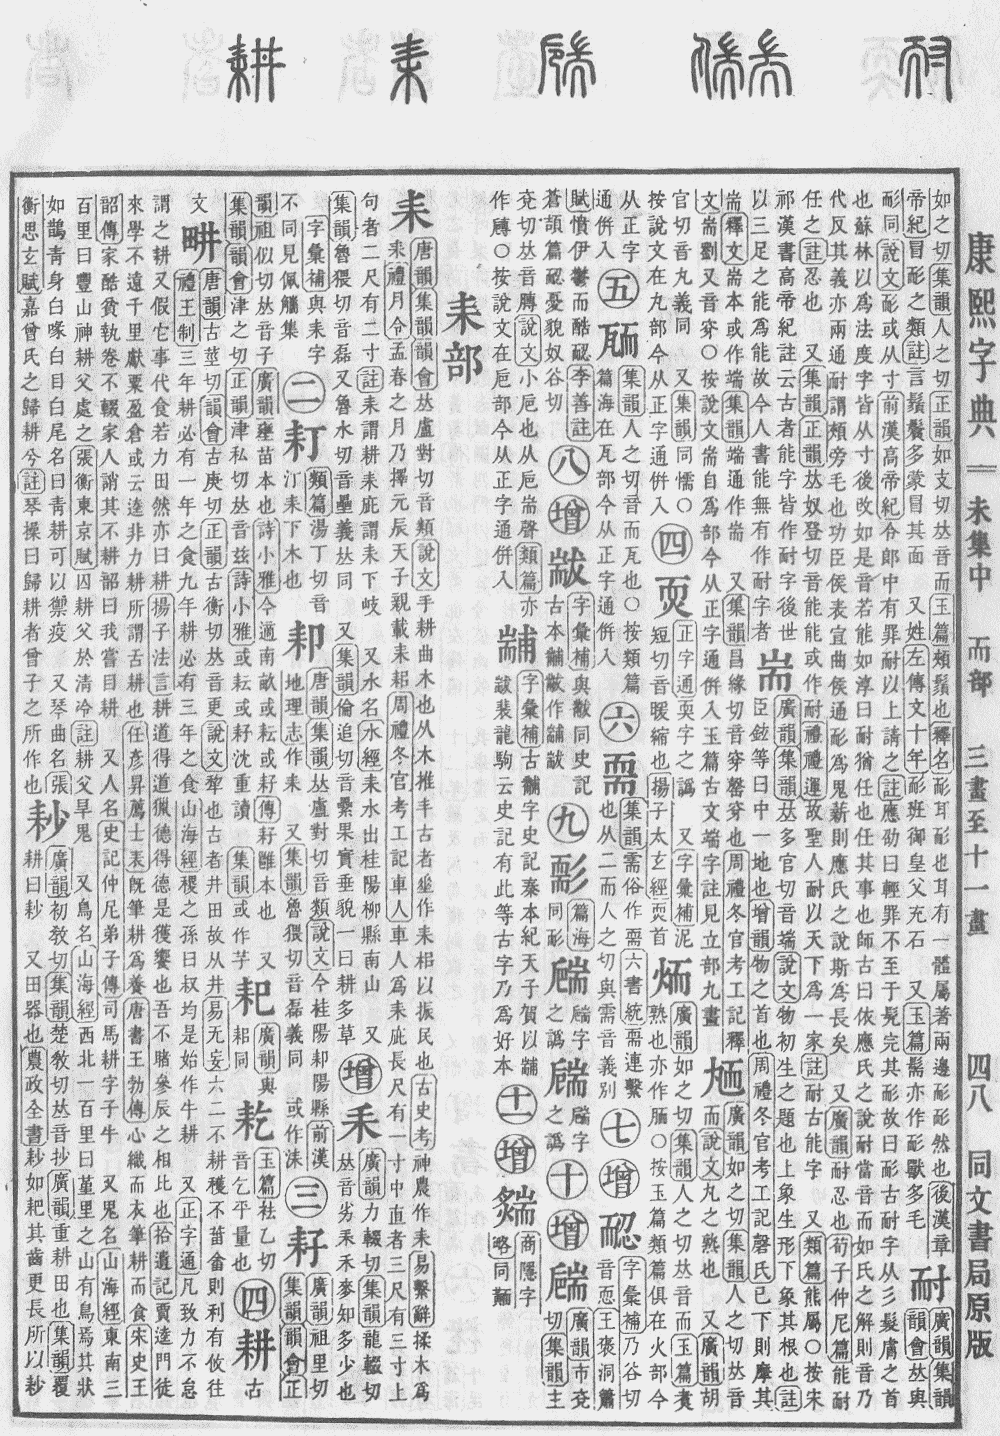 康熙字典 未集中 而部 三畫至十一畫 四八 同文書局原版
如之切集韻人之切正韻如支切𠀤音而玉篇頰鬚也釋名耏耳耏也耳有一體屬著兩邊耏耏然也後漢章
帝紀冒耏之類註言鬚鬢多蒙冒其面 又姓左傳文十年耏班御皇父充石 又玉篇髵亦作耏獸多毛
耐廣韻集韻韻會𠀤與
耏同說文耏或从寸前漢高帝紀令郎中有罪耐以上請之註應劭曰輕罪不至于髡完其耏故曰耏古耐字从彡髮膚之首
也蘇林以爲法度字皆从寸後改如是音若能如淳曰耐猶任也任其事也師古曰依應氏之說耐當音而如氏之解則音乃
代反其義亦兩通耐謂頰旁毛也功臣侯表宣曲侯通耏爲鬼薪則應氏之說斯爲長矣 又廣韻耐忍也荀子仲尼篇能耐
任之註忍也 又集韻正韻𠀤奴登切音能能或作耐禮禮運故聖人耐以天下爲一家註耐古能字 又類篇熊屬○按宋
祁漢書高帝紀註云古者能字皆作耐字後世
以三足之能爲能故今人書能無有作耐字者
耑廣韻集韻𠀤多官切音端說文物初生之題也上象生形下象其根也註
臣鉉等曰中一地也增韻物之首也周禮冬官考工記磬氏已下則摩其
耑釋文耑本或作端集韻端通作耑 又集韻昌緣切音穿罄穿也周禮冬官考工記釋
文耑劉又音穿○按說文耑自爲部今从正字通倂入玉篇古文端字註見立部九畫
廣韻如之切集韻人之切𠀤音
而說文丸之熟也 又廣韻胡
官切音丸義同 又集韻同懦○
按說文在丸部今从正字通倂入
四耎正字通耎字之譌 又字彙補泥
短切音暖縮也揚子太玄經耎首
廣韻如之切集韻人之切𠀤音而玉篇煑
熟也亦作胹○按玉篇類篇俱在火部今
从正字
通倂入
五集韻人之切音而瓦也○按類篇
篇海在瓦部今从正字通倂入
六集韻需俗作需六書統需連繫
也从二而人之切與需音義別
七增字彙補乃谷切
音恧王褒洞簫
賦憤伊鬱而酷䎡李善註
蒼頡篇䎡憂貌奴谷切
八增字彙補與黻同史記
古本黼黻作
九篇海
同耏
之譌
字
之譌
十增廣韻市兗
切集韻主
兗切𠀤音膞說文小巵也从巵耑聲類篇亦
作膞○按說文在巵部今从正字通倂入
字彙補古黼字史記秦本紀天子賀以黼
黻裴龍駒云史記有此等古字乃爲好本
十一增商隱字
略同
耒部
耒唐韻集韻韻會𠀤盧對切音類說文手耕曲木也从木推丰古者垂作耒枱以振民也古史考神農作耒易繫辭揉木爲
耒禮月令孟春之月乃擇元辰天子親載耒耜周禮冬官考工記車人車人爲耒庛長尺有一寸中直者三尺有三寸上
句者二尺有二寸註耒謂耕耒庛謂耒下岐 又水名水經耒水出桂陽郴縣南山 又
集韻魯猥切音磊又魯水切音壘義𠀤同 又集韻倫追切音纍果實垂貌一曰耕多草
增耒廣韻力輟切集韻龍輟切
𠀤音劣耒禾麥知多少也
字彙補與耒字
不同見佩觿集
二耓類篇湯丁切音
汀耒下木也
耶唐韻集韻𠀤盧對切音類說文今桂陽耶陽縣前漢
地理志作耒 又集韻魯猥切音磊義同 或作洡
三耔廣韻祖里切
集韻韻會正
韻祖似切𠀤音子廣韻壅苗本也詩小雅今適南畝或耘或耔傳耔雝本也 又
集韻韻會津之切正韻津私切𠀤音兹詩小雅或耘或耔沈重讀 集韻或作芓
耙廣韻與
耜同
䎢玉篇袪乙切
音乞平量也
四耕古
文畊唐韻古莖切韻會古庚切正韻古衡切𠀤音更說文犂也古者井田故从井易无妄六二不耕穫不菑畬則利有攸往
禮王制三年耕必有一年之食九年耕必有三年之食山海經稷之孫曰叔均是始作牛耕 又正字通凡致力不怠
謂之耕又假它事代食若力田然亦曰耕揚子法言耕道得道獵德得德是獲饗也吾不睹參辰之相比也拾遺記賈逵門徒
來學不遠千里獻粟盈倉或云逵非力耕所謂舌耕也任彥昇薦士表旣筆耕爲養唐書王勃傳心織而衣筆耕而食宋史王
韶傳家酷貧執卷不輟家人誚其不耕韶曰我嘗目耕 又人名史記仲尼弟子傳司馬耕字子牛 又鬼名山海經東南三
百里曰豐山神耕父處之張衡東京賦囚耕父於清泠註耕父旱鬼 又鳥名山海經西北一百里曰堇里之山有鳥焉其狀
如鵲靑身白喙白目白尾名曰靑耕可以禦疫 又琴曲名張
衡思玄賦嘉曾氏之歸耕兮註琴操曰歸耕者曾子之所作也
耖廣韻初敎切集韻楚敎切𠀤音抄廣韻重耕田也集韻覆
耕曰耖 又田器也農政全書耖如耙其齒更長所以耖